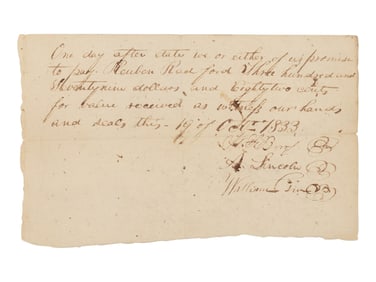 One day after date we or either of us promise
to pay Reuben Radford Three hundred and
Seventynine dollars and Eightytwo cents
for value received as witness our hands
and seals this 19 of Octr 1833
A. Lincoln
William Green